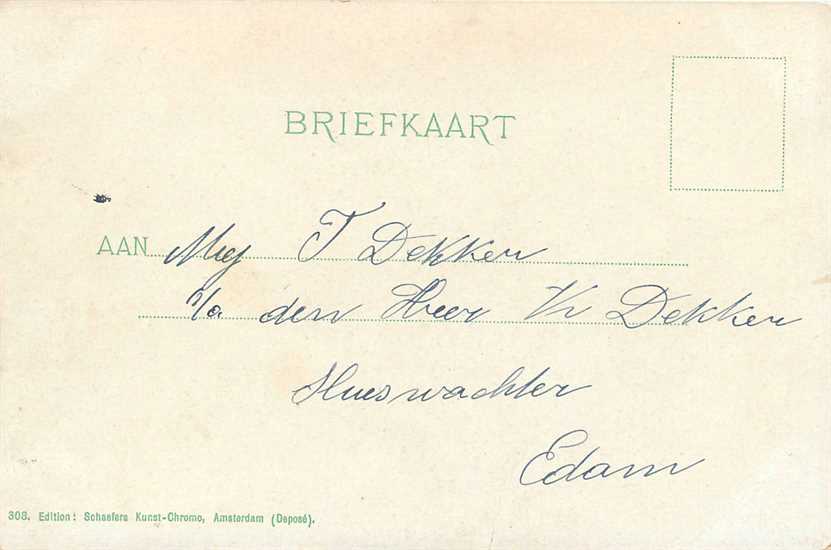 BRIEFKAART
AAN Mej T Dekker
p/a den Heer Kr Dekker
Sluiswachter
Edam
308. Edition: Schaefers Kunst-Chromo, Amsterdam (Deposé).